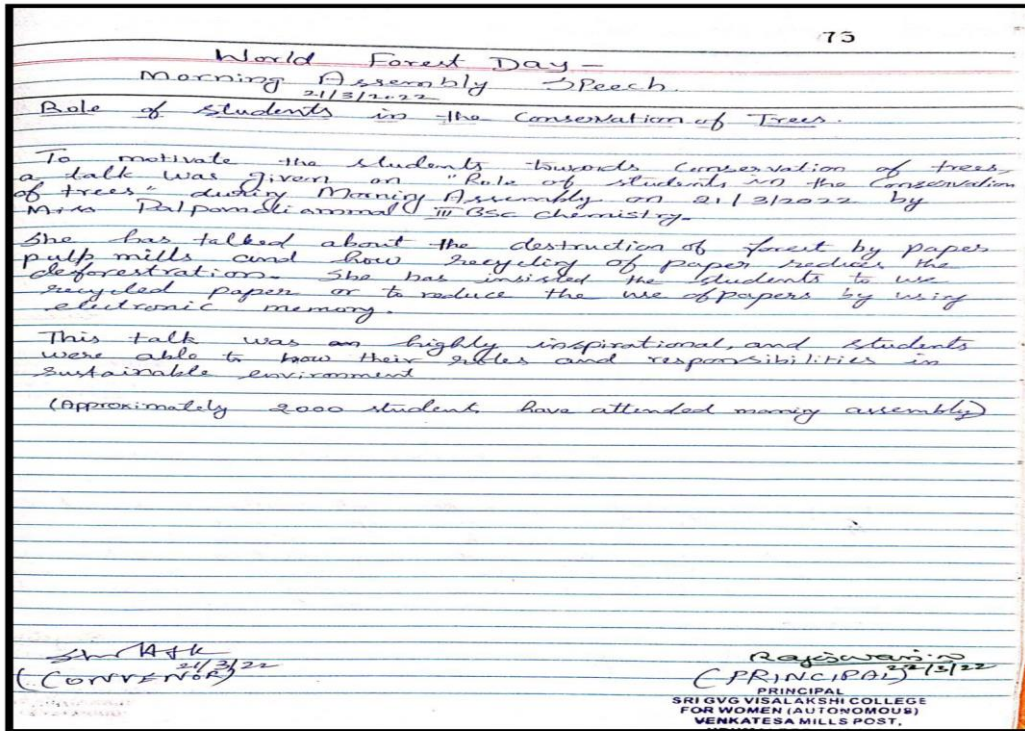 75
World Forest Day -
Morning Assembly Speech.
21/3/2022
Role of students in the Conservation of Trees.
To motivate the students towards Conservation of trees,
a talk was given on "Role of students in the Conservation
of trees" during Morning Assembly on 21/3/2022 by
Miss Palpomaliammal III BSc Chemistry.
She has talked about the destruction of forest by paper
pulp mills and how recycling of paper reduces the
deforestration. She has insisted the students to use
recycled paper or to reduce the use of papers by using
electronic memory.
This talk was an highly inspirational, and students
were able to know their roles and responsibilities in
sustainable environment
(Approximately 2000 student have attended mornig assembly)
21/3/22
(CONVENOR)
22/3/22
(PRINCIPAL)
PRINCIPAL
SRI GVG VISALAKSHI COLLEGE
FOR WOMEN (AUTONOMOUS)
VENKATESA MILLS POST,